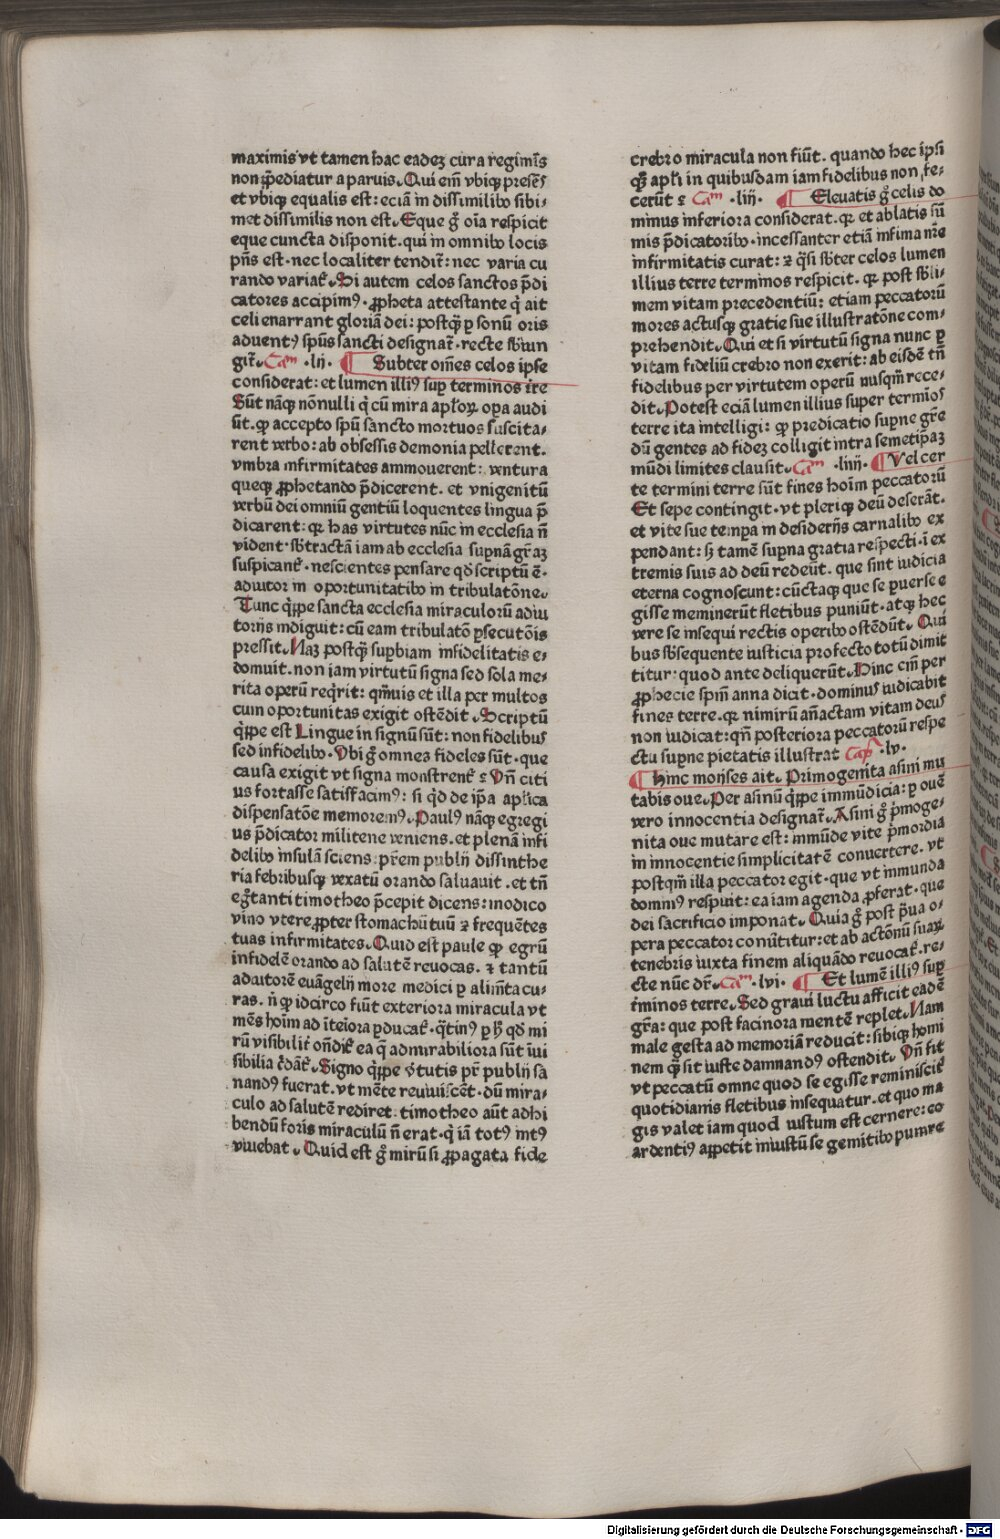 maximis vt tamen hac eadeꝫ cura regimīs
non p̄pediatur a paruis. Qui em̄ vbiqꝫ presēs
et vbiqꝫ equalis est: eciā in dissimilibꝰ sibi-
met dissimilis non est. Eque gͦ oīa respicit
eque cuncta disponit. qui in omnibꝰ locis
pn̄s est. nec localiter tendit̄: nec varia cu
rando variat̄. Si autem celos sanctos p̄di
catores accipimꝰ. ꝓpheta attestante q̄ ait
celi enarrant gloriā dei: postqꝫ̄ ꝑ sonū oris
aduentꝰ spūs sancti designat̄. recte sb̄iun
git̄. Cam .lij. Subter om̄es celos ipse
considerat: et lumen illiꝰ suꝑ terminos tr̄e
Sūt nāqꝫ nōnulli q̄ cū mira apl'oꝝ oꝑa audi
ūt. ꝙ accepto spū sancto mortuos suscita-
rent verbo: ab obsessis demonia pellerent.
vmbra infirmitates ammouerent: ventura
queqꝫ ꝓphetando p̄dicerent. et vnigenitū
verbū dei omniū gentiū loquentes lingua p̄
dicarent: qꝛ has virtutes nūc in ecclesia n̄
vident. sb̄tractā iam ab ecclesia supnā gr̄aꝫ
suspicant̄. nescientes pensare qd̄ scriptū ē.
adiutor in oportunitatibꝰ in tribulatōne.
Tunc q̄ꝑpe sancta ecclesia miraculorū adiu
torijs indiguit: cū eam tribulatō ꝑsecutōis
pressit. Naꝫ postqꝫ̄ suꝑbiam infidelitatis e-
domuit. non iam virtutū signa sed sola me-
rita operū req̄rit: qm̄uis et illa per multos
cum oportunitas exigit ostēdit. Scriptū
q̄ꝑpe est Lingue in signū sūt: non fidelibus
sed infidelibꝰ. Vbi gͦ omnes fideles sūt. que
causa exigit vt signa monstrent̄ ꝛ Vn̄ citi
us fortasse satisfacimꝰ: si q̄d de ip̄a apl'ica
dispensatōne memoremꝰ. Paulꝰ nāqꝫ egregi
us p̄dicator militene veniens. et plenā infi
delibꝰ insulā sciens: pr̄em publij dissinthe
ria febribusqꝫ vexatū orando saluauit. et tn̄
egr̄tanti timotheo p̄cepit dicens: modico
vino vtere ꝓpter stomachū tuū ⁊ frequētes
tuas infirmitates. Quid est paule ꝙ egrū
infidelē orando ad salutē reuocas. ⁊ tantū
adiutorē euāgelij more medici ꝑ alimēta cu-
ras. n̄ ꝙ idcirco fiūt exteriora miracula vt
mēs hoīm ad īteiora ꝑducat̄. q̄tinꝰ ꝑ hͦ qd̄ mi
rū visibilit̄ ond̄ic̄ ea q̄ admirabiliora sūt īui
sibilia cr̄dāt̄. Signo q̄ꝑpe v̄tutis pr̄ publij sa
nandꝰ fuerat. vt mēte reuiuiscēt. dū mira-
culo ad salutē rediret: timotheo aūt adhi
bendū foris miraculū n̄ erat. q̄ iā totꝰ intꝰ
viuebat. Quid est gͦ mirū si ꝓpagata fide
crebro miracula non fiūt. quando hec ipsi
qꝫ̄ apl'i in quibusdam iam fidelibus non fe-
cerūt ꝛ Cam .liij. Eleuatis gͦ celis do
minus inferiora considerat. qꝛ et ablatis sū
mis p̄dicatoribꝰ. incessanter etiā infima nr̄e
infirmitatis curat: ⁊ q̄si sb̄ter celos lumen
illius terre terminos respicit. qꝛ post sb̄li-
mem vitam precedentiū: etiam peccatorū
mores actusqꝫ gratie sue illustratōne com-
prehendit. Qui et si virtutū signa nunc ꝑ
vitam fideliū crebro non exerit: ab eisdē tn̄
fidelibus per virtutem operū nusqm̄ rece-
dit. Potest eciā lumen illius super termīos
terre ita intelligi: ꝙ predicatio supne gr̄e
dū gentes ad fideꝫ colligit intra semetipaꝫ
mūdi limites clausit. Cam .liiij. Vel cer
te termini terre sūt fines hoīm peccatorū
Et sepe contingit. vt pleriqꝫ deū deserāt.
et vite sue tempa in desiderijs carnalibꝰ ex
pendant: sꝫ tamē supna gratia respecti. ī ex
tremis suis ad deū redeūt. que sint iudicia
eterna cognoscunt: cūctaqꝫ que se ꝑuerse e
gisse meminerūt fletibus puniūt. atqꝫ hec
vere se insequi rectis operibꝰ ostēdūt. Qui
bus sb̄sequente iusticia profecto totū dimit
titur: quod ante deliquerūt. Hinc em̄ per
ꝓphecie spm̄ anna dicit. dominus iudicabit
fines terre. qꝛ nimirū an̄actam vitam deus
non iudicat: qn̄ posteriora peccatorū respe
ctu supne pietatis illustrat Cap̄ .lv.
Hinc moyses ait. Primogenita asini mu
tabis oue. Per asinū q̄ꝑpe immūdicia: ꝑ ouē
vero innocentia designat̄. Asini gͦ p̄moge-
nita oue mutare est: inmūde vite p̄mordia
in innocentie simplicitatē conuertere. vt
postqm̄ illa peccator egit. que vt inmunda
domnꝰ respuit: ea iam agenda ꝓferat. que
dei sacrificio imponat. Quia gͦ post p̄ua o-
pera peccator conūtitur: et ab actōnū suaꝝ
tenebris iuxta finem aliquādo reuocat̄. re-
cte nūc dr̄. Cam .lvi. Et lumē illiꝰ suꝑ
t̄minos terre. Sed graui luctu afficit eadē
gr̄a: que post facinora mentē replet. Nam
male gesta ad memoriā reducit: sibiqꝫ homi
nem qꝫ̄ sit iuste damnandꝰ ostendit. Vn̄ fit
vt peccatū omne quod se egisse reminiscit̄
quotidianis fletibus insequatur. et quo ma
gis valet iam quod iustum est cernere: eo
ardentiꝰ aꝑpetit iniustū se gemitibꝰ punire
Digitalisierung gefördert durch die Deutsche Forschungsgemeinschaft - DFG